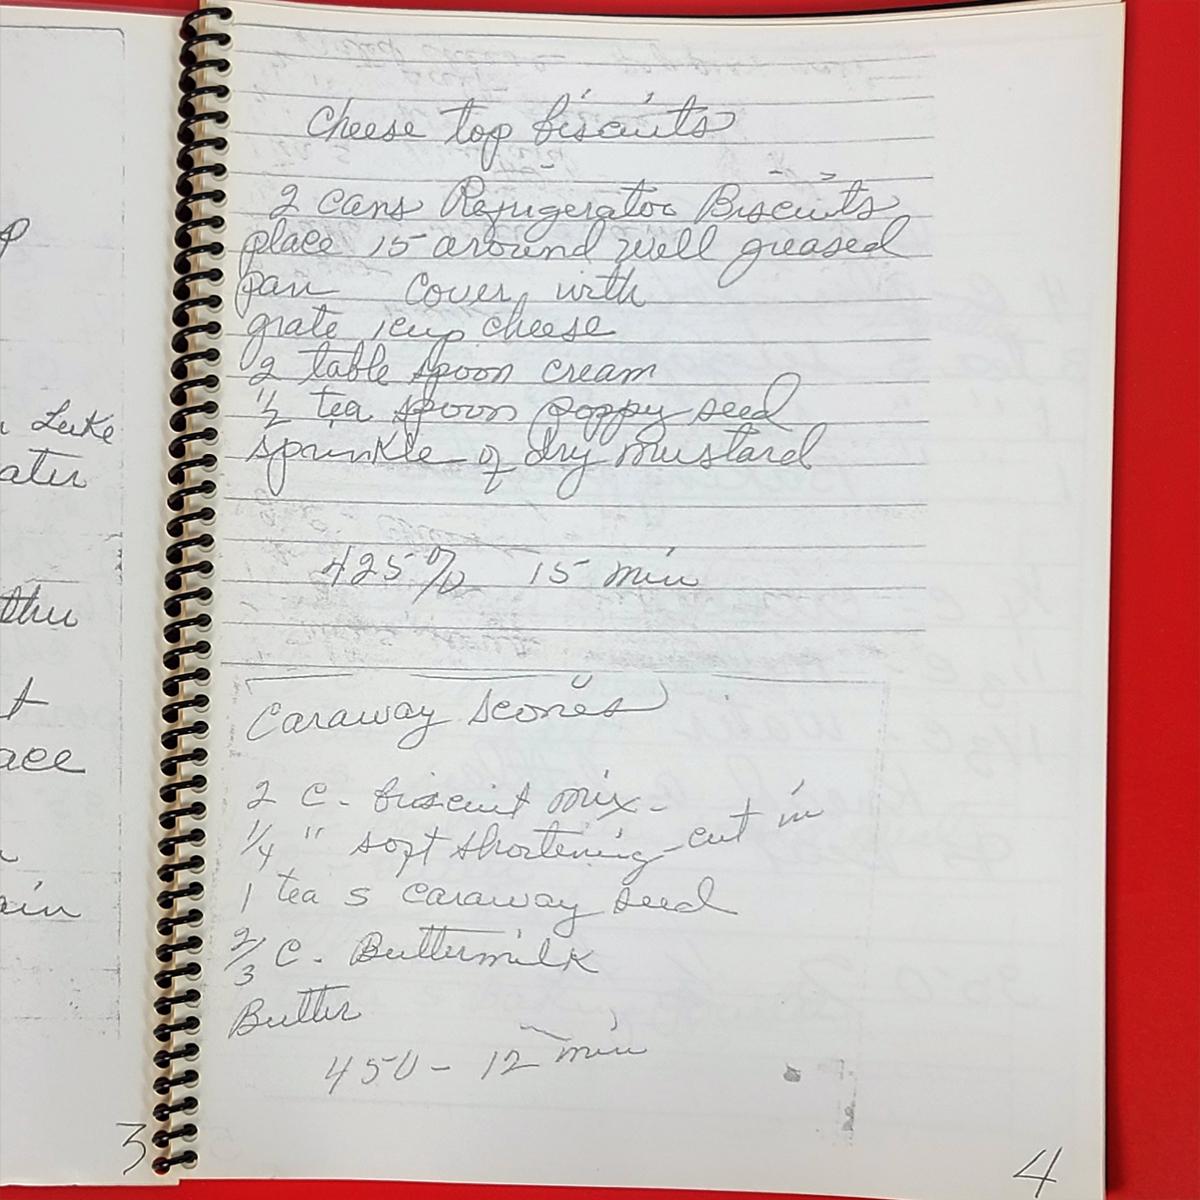 p
Luke
ater
thru
t
ace
ain
3
Cheese top biscuits
2 cans Refrigerator Biscuits
place 15 around well greased
pan cover with
grate 1 cup cheese
2 table spoon cream
1/2 tea spoon poppy seed
sprinkle of dry mustard
425% 15 min
Caraway scones
2 C. biscuit mix-
1/4 " soft shortening - cut in
1 tea s caraway seed
2/3 C. Buttermilk
Butter
450 - 12 min
4